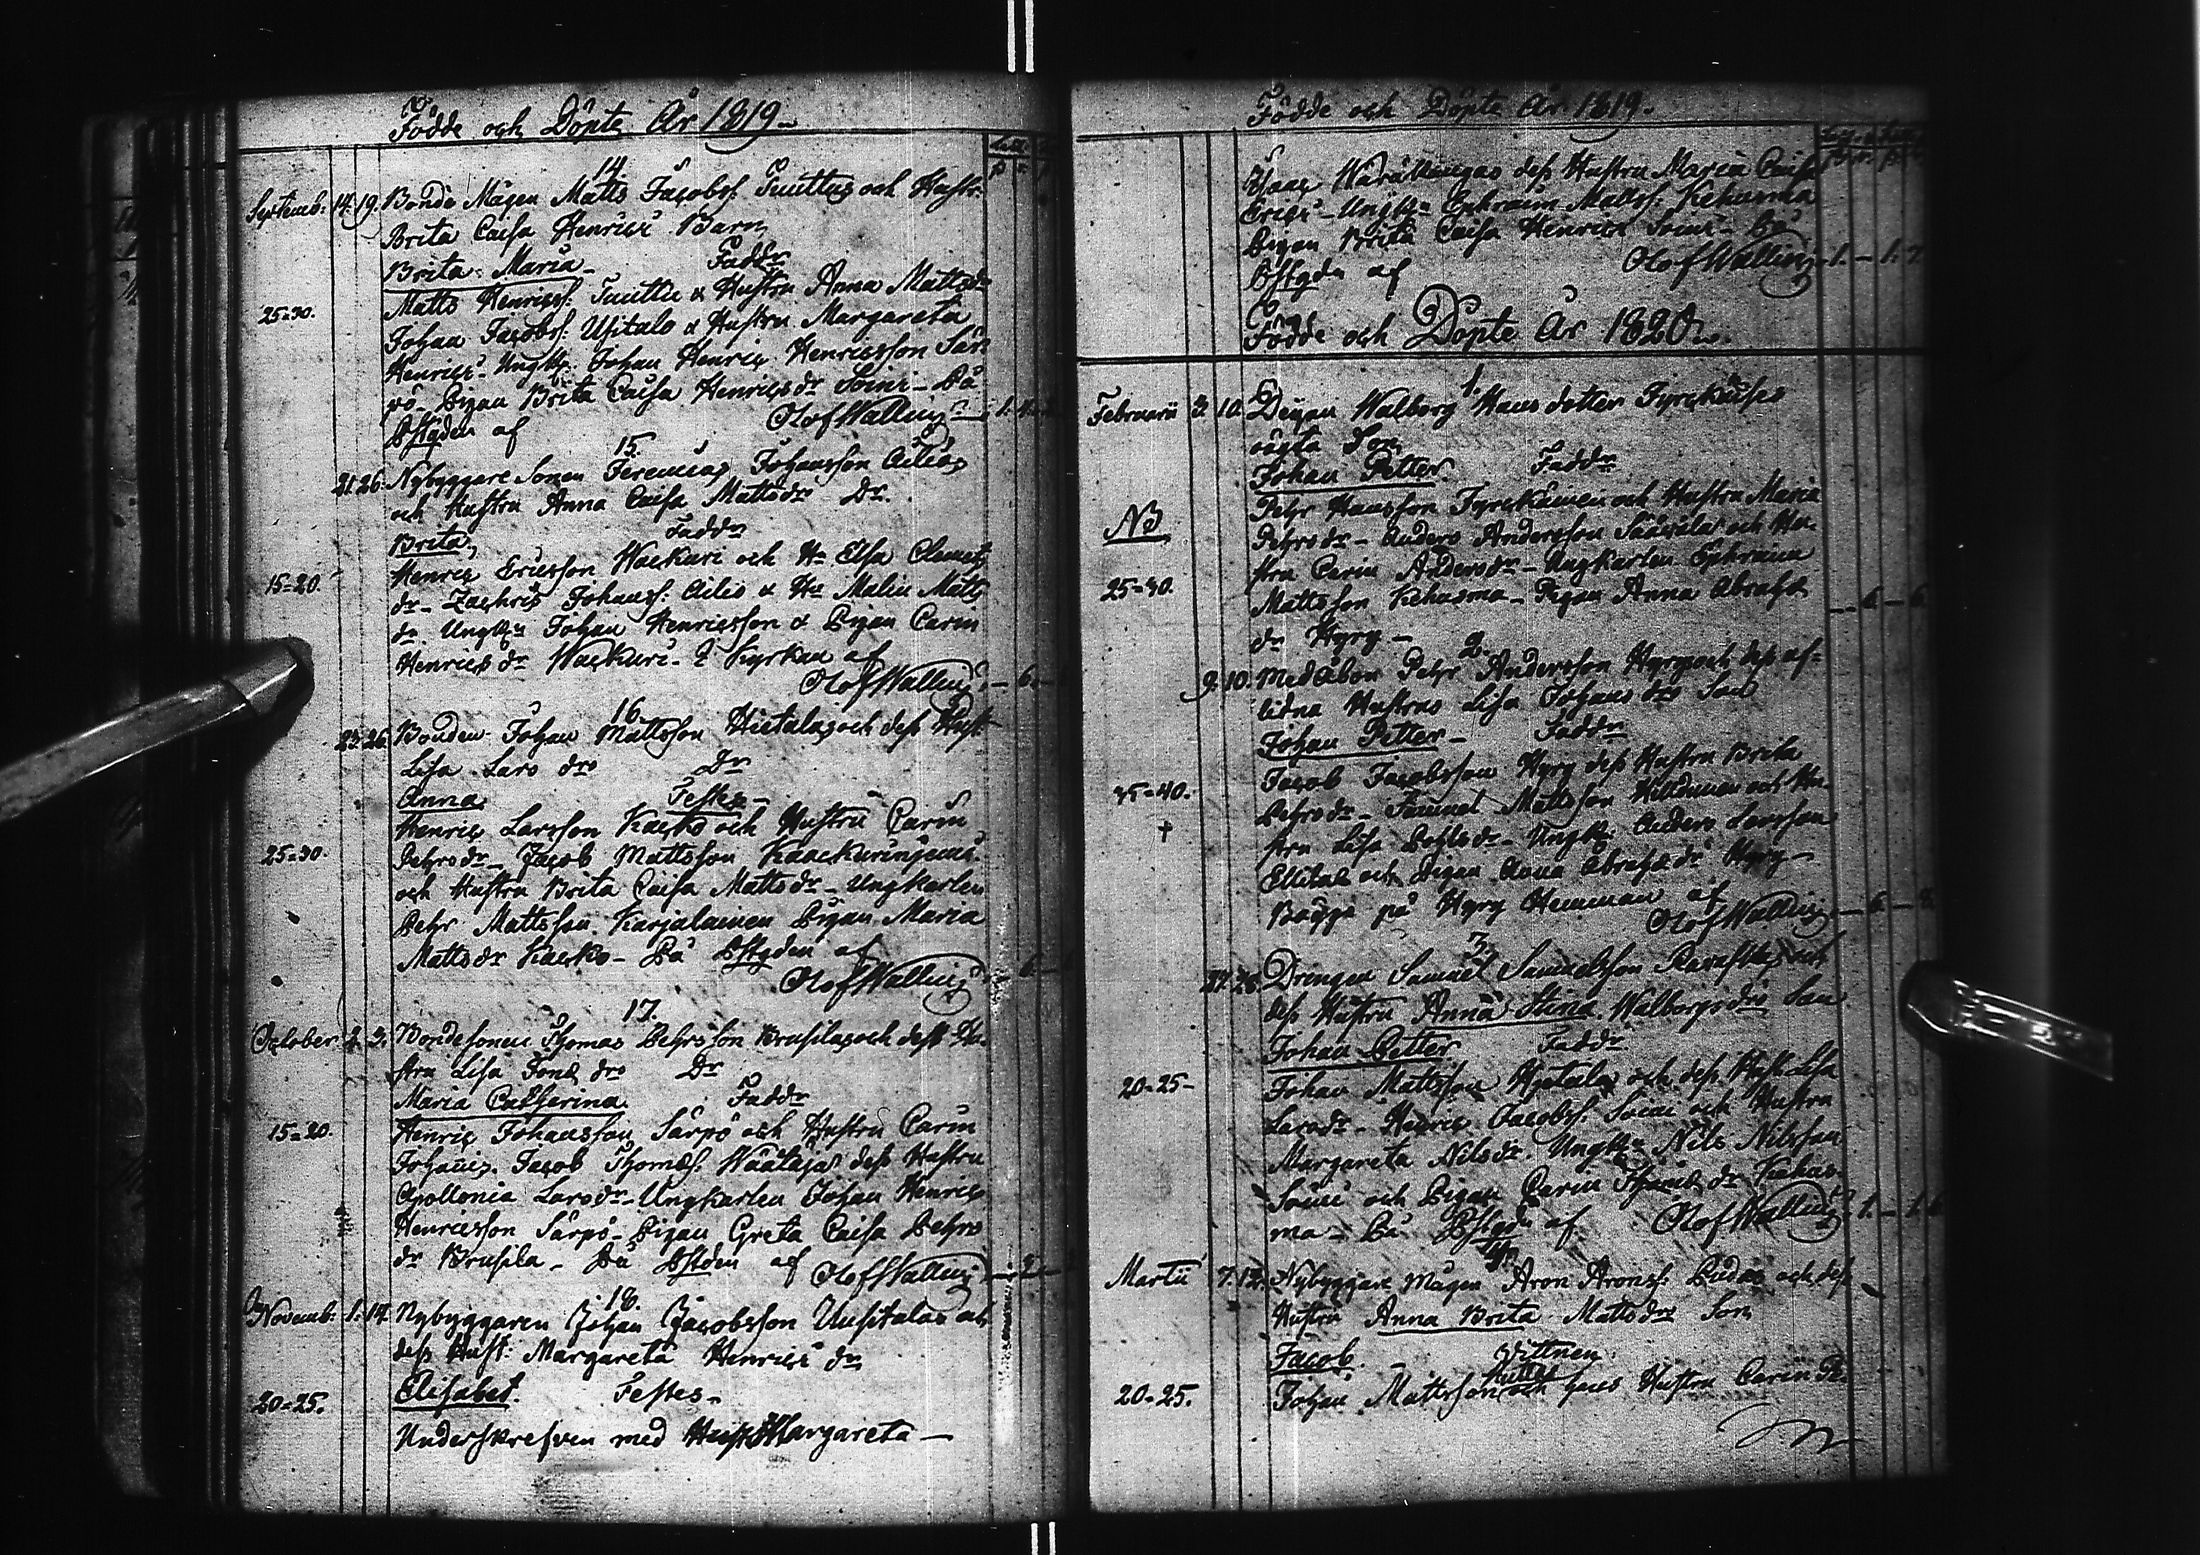 Födde och Döpte År 1819.
14.
Septemb: 14. 19. Bonde Mågen Matts Jacobss. Tuuttus och Hustr:
Brita Caisa Henrics Barn
Brita Maria Faddr
Matts Henricss: Tuuttu & Hustru Anna Mattsdr
25=30. Johan Jacobss. Usitalo & Hustru Margareta
Henrics- Ungk. Johan Henric Henricsson Sär-
pö- Pigan Brita Caisa Henricsdr Soini- På
Pstgden af Olof Wallin 1.
15.
21. 26. Nybyggare Sonen Jeremias Johansson Ailios
och Hustru Anna Caisa Mattsdr Dr.
Brita, Faddr
Henric Ericsson Wackuri och Hu Elsa Clemets
15=20. dr- Zachris Johanss: Ailio & Hu Malin Matts
dr. Ungk Johan Henricsson & Pigan Carin
Henricsdr Wackuri- I Kyrkan af
Olof Wallin - 6.-
16.
23. 26. Bonden Johan Mattsson Hietalas och dess Hust
Lisa Lars drs Dr
Anna Testes-
Henric Larsson Kacko och Hustru Carin
25=30. Pehrsdr- Jacob Mattsson
och Hustru Brita Caisa Mattsdr- Ungkarlen
Pehr Mattsson Karjalainen Pigan Maria
Mattsdr Kacko- På Pstgden af
Olof Wallin 6-
17.
October 2. 3. Bondesonen Thomas Pehrsson Brusilas och dess Hu-
stru Lisa Jons drs Dr
Maria Catharina Faddr
15=20. Henric Johansson Särpö och Hustru Carin
Johanis. Jacob Thomass: Wäätäjä dess Hustru
Apollonia Larsdr- Ungkarlen Johan Henric
Henricsson Särpö- Pigan Greta Caisa Pehrs
dr Brusila- På Pstden af Olof Wallin
18.
Novemb: 1. 14. Nybyggaren Johan Jacobsson Uusitalas och
dess Hust: Margareta Henrics dr
Elisabet. Testes-
20=25. Underskrefven med Hust Margareta-
Födde och Döpte År 1819.
Isac dess Hustru Maria Caisa
Erics- Ungk Ephraim Mattss: Kehusmaa
Pigan Brita Caisa Henrics Soini- På
Pstgdn af Olof Wallin 1.- 1. 7.
Födde och Döpte År 1820.
1.
Februarii 3. 10. Pigan Walborg Hansdotter
oägta Son
Johan Petter Faddr
Pehr Hansson och Hustru Maria
NB Pehrsdr- Anders Andersson Säävälä och Hu-
stru Carin Andersdr- Ungkarlen Ephraim
25=30. Mattsson Kehusma- Pigan Anna Abrahs
dr Hyry- - 6.- 6.
2.
9. 10. Medåbon Pehr Andersson Hyrys och dess af-
lidna Hustrus Lisa Johans drs Son
Johan Petter- Faddr
Jacob Jacobsson Hyry dess Hustru Brita
35=40. Pehrsdr- Samuel Mattsson och Hu-
+ stru Lisa Ungk: Anders Larsson
och Pigan Anna Abrahsdr Hyry-
Bägge på Hyry Hemman af
Olof Wallin - 6.-
3.
Drengen Samuel Samuelsson och
dess Hustru Anna Stina Walborgs drs Son
Johan Petter Faddr
20=25- Johan Mattsson Hjetala och dess Hust Lisa
Larsdr- Henric Jacobss. Soini och Hustru
Margareta Nilsdr. Ungk Nils Nilsson
Soini och Pigan Carin dr Kehus-
ma- På Pstgdn af Olof Wallin 1.- 1. 6
4.
Martii 7. 12. Nybyggare Mågen Aron Aronss: Pudas och dess
Hustru Anna Brita Mattsdrs Son
Jacob.- Vittnen:
20=25. Johan Mattsson och hans Hustru Carin